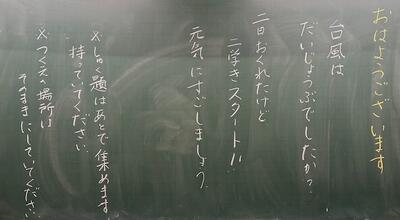 おはようございます
台風は
だいじょうぶでしたか？
二日おくれたけど
二学きスタート!!
元気にすごしましょう。
※しゅく題はあとで集めます。
持っていてください。
※つくえの場所は
そのままにしていてください